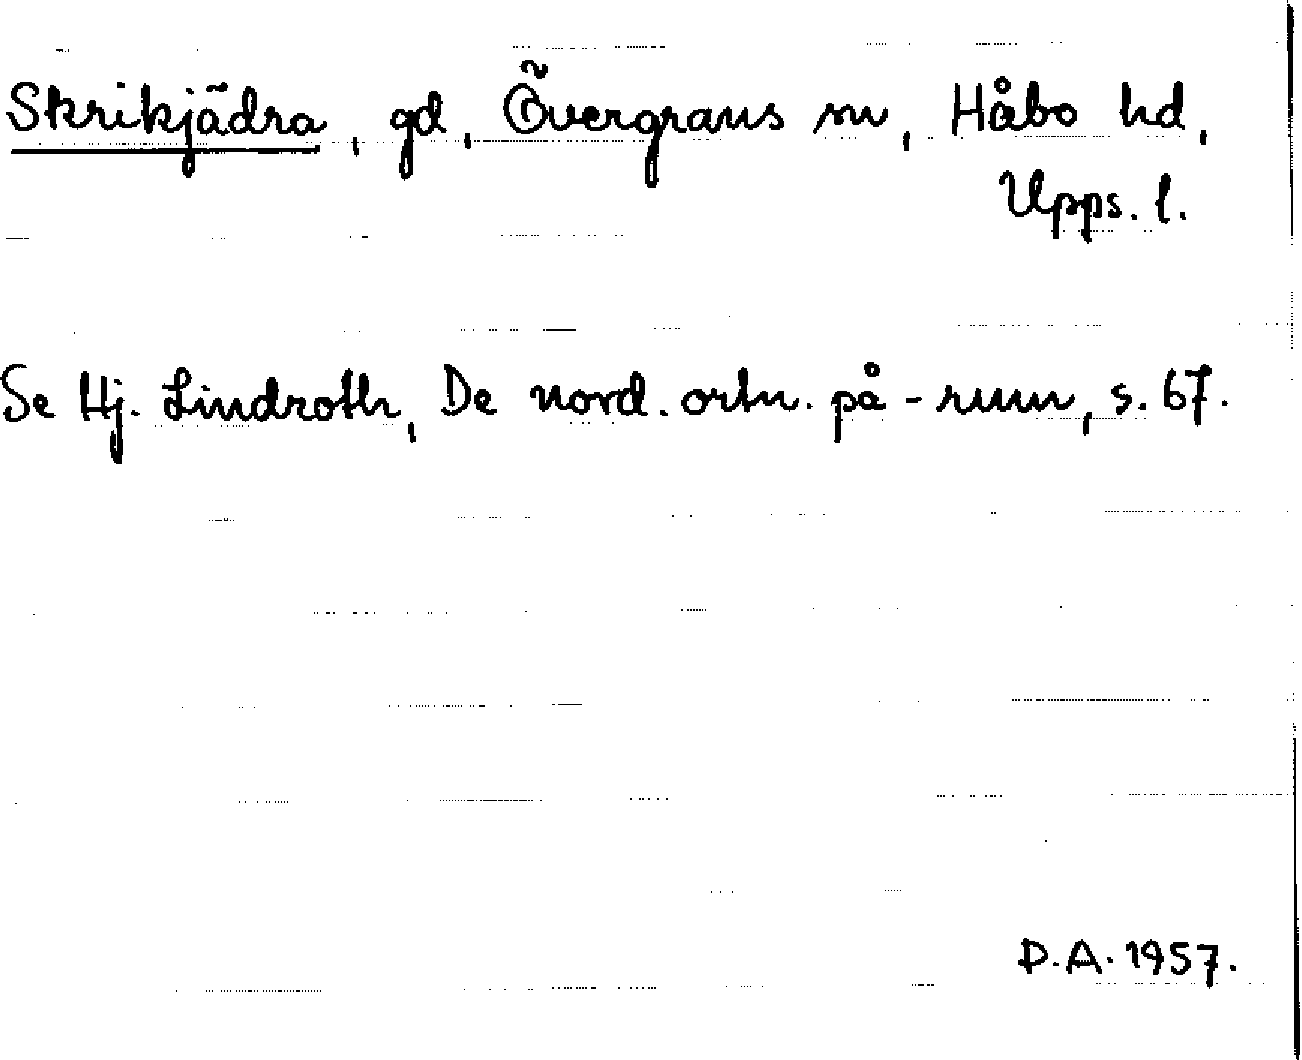 Skrikjädra, gd, Övergrans sn, Håbo hd,
Upps. l.
Se Hj. Lindroth, De nord. ortn. på -runn, s. 67.
D.A. 1957.